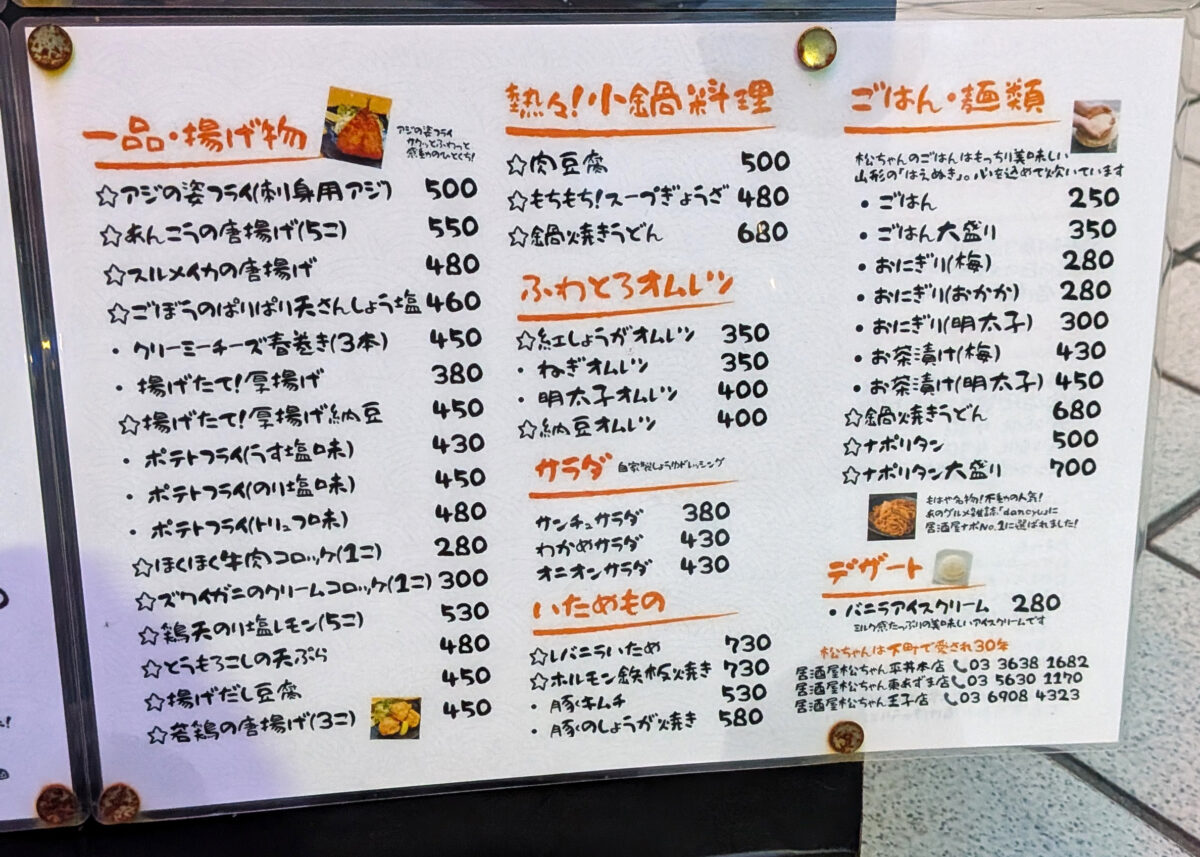 一品・揚げ物
アジの姿フライ
サクッとふわっと
感動のひとくち!
☆アジの姿フライ(刺身用アジ) 500
☆あんこうの唐揚げ(5コ) 550
☆スルメイカの唐揚げ 480
☆ごぼうのぱりぱり天さんしょう塩 460
・クリーミーチーズ春巻き(3本) 450
・揚げたて!厚揚げ 380
☆揚げたて!厚揚げ納豆 450
・ポテトフライ(うす塩味) 430
・ポテトフライ(のり塩味) 450
・ポテトフライ(トリュフ味) 480
☆ほくほく牛肉コロッケ(1コ) 280
☆ズワイガニのクリームコロッケ(1コ) 300
☆鶏天のり塩レモン(5コ) 530
☆とうもろこしの天ぷら 480
☆揚げだし豆腐 450
☆若鶏の唐揚げ(3コ) 450
熱々!小鍋料理
☆肉豆腐 500
☆もちもち!スープぎょうざ 480
☆鍋焼きうどん 680
ふわとろオムレツ
☆紅しょうがオムレツ 350
・ねぎオムレツ 350
・明太子オムレツ 400
☆納豆オムレツ 400
サラダ 自家製しょうゆドレッシング
サンチュサラダ 380
わかめサラダ 430
オニオンサラダ 430
いためもの
☆レバニラいため 730
☆ホルモン鉄板焼き 730
・豚キムチ 530
・豚のしょうが焼き 580
ごはん・麺類
松ちゃんのごはんはもっちり美味しい
山形の「はえぬき」。心を込めて炊いています
・ごはん 250
・ごはん大盛り 350
・おにぎり(梅) 280
・おにぎり(おかか) 280
・おにぎり(明太子) 300
・お茶漬け(梅) 430
・お茶漬け(明太子) 450
☆鍋焼きうどん 680
☆ナポリタン 500
☆ナポリタン大盛り 700
もはや名物!不動の人気!
あのグルメ雑誌「dancyu」に
居酒屋ナポNo.1に選ばれました!
デザート
・バニラアイスクリーム 280
ミルク感たっぷりの美味しいアイスクリームです
松ちゃんは下町で愛され30年
居酒屋松ちゃん平井本店 03 3638 1682
居酒屋松ちゃん東あずま店 03 5630 1170
居酒屋松ちゃん王子店 03 6908 4323